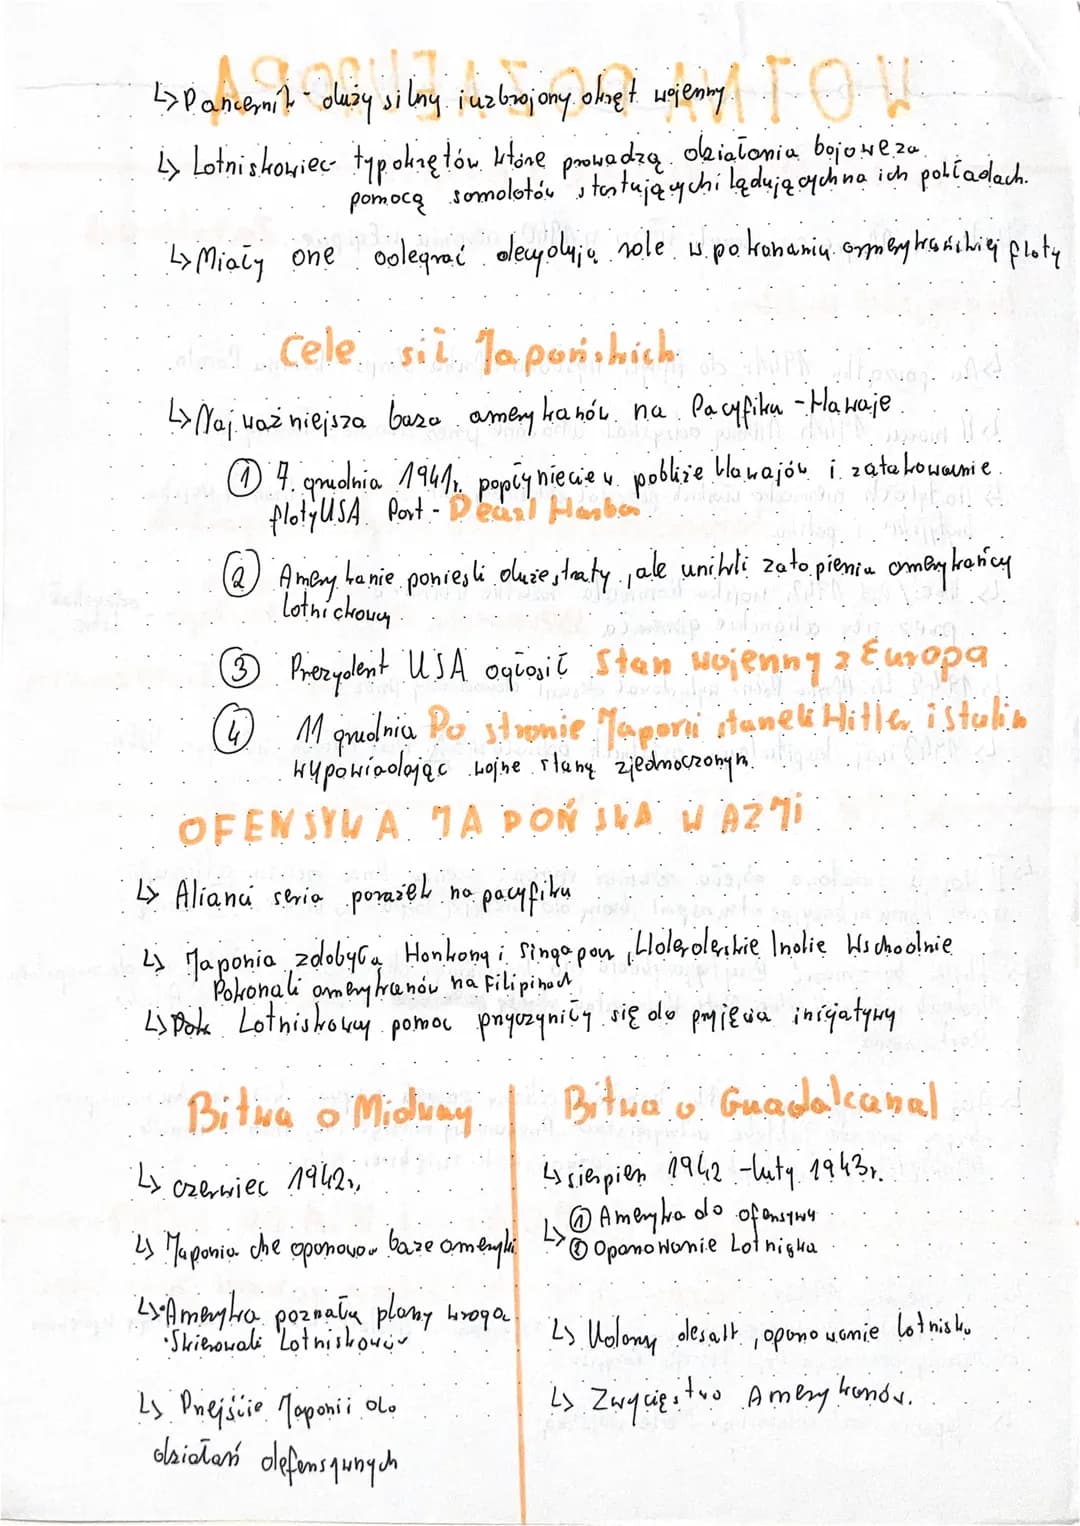 ↳ Pancernik - duży silny i uzbrojony okręt wojenny.
↳ Lotniskowiec - typ okrętów które prowadzą działania bojowe za
pomocą samolotów startujących i lądujących na ich pokładach.
↳ Miały one odegrać decydują role w pokonaniu amerykańskiej floty
Cele sił Japońskich
↳ Najważniejsza baza amerykanów na Pacyfiku - Hawaje
① 7. grudnia 1941r. popłyniecie w pobliże Hawajów i zatakowanie
floty USA Port - Pearl Harbor
② Amerykanie ponieśli duże straty, ale unikli zatopienia amerykańcy
Lotnickowcy
③ Prezydent USA ogłosił Stan wojenny z Europą
④ 11 grudnia Po stronie Japonii staneli Hitler i Stalin
wypowiadając wojne stany zjednoczonym.
OFENSYWA JAPOŃSKA W AZJI
↳ Alianci seria porażek na pacyfiku
↳ Japonia zdobyła Honkong i Singapour, Holederskie Indie Wschodnie
Pokonali amerykanów na Filipinach
↳ Lotniskowcy pomoc przyczyniły się do przjęcia inicjatywy
Bitwa o Midway
↳ czerwiec 1942r.
↳ Japonia che oponować baze ameryki
↳ • Ameryka poznała plany wroga
• Skierowali Lotniskowiec
↳ Przejście Japonii do
działań defensywnych
Bitwa o Guadalcanal
↳ sierpień 1942 - luty 1943r.
↳ ① Ameryka do ofensywy
② Opanowanie Lotniska
↳ Udany desant, opanowanie lotniska
↳ Zwycięstwo Amerykanów.